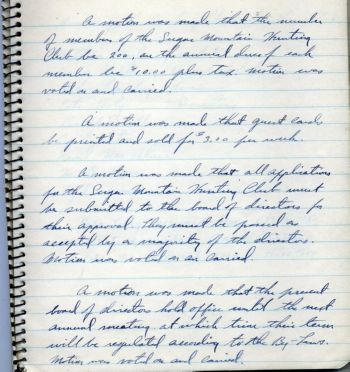 A motion was made that the number
of members of the Sugar Mountain Hunting
Club be 200, an the annual dues of each
member be $10.00 plus tax. Motion was
voted on and carried.
A motion was made that guest cards
be printed and sold for $3.00 per week.
A motion was made that all applications
for the Sugar Mountain Hunting Club must
be submitted to the board of directors for
their approval. They must be passed or
accepted by a majority of the directors.
Motion was voted on an carried.
A motion was made that the present
board of directors hold office until the next
annual meeting, at which time their term
will be regulated according to the By-Laws.
Motion was voted on and carried.